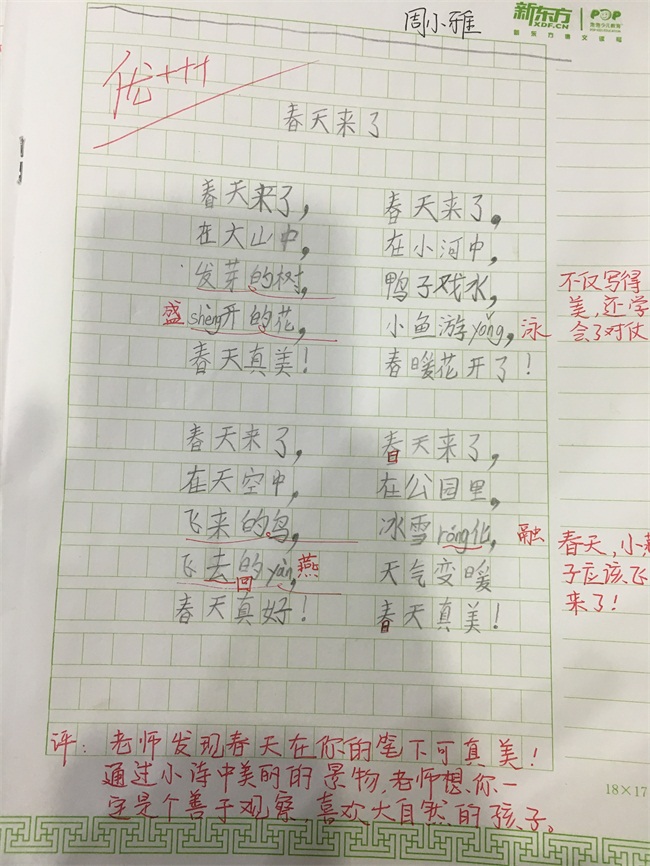 周小雅
新东方
XDF.CN
POP
优+++
春天来了
春天来了，
在大山中，
发芽的树，
盛 shèng开的花，
春天真美！
春天来了，
在小河中，
鸭子戏水，
小鱼游yǒng，泳
春暖花开了！
不仅写得
美，还学
会了对仗
春天来了，
在天空中，
飞来的鸟，
飞去的yàn，燕
回
春天真好！
春天来了，
在公园里，
冰雪róng化，融
天气变暖
春天真美！
春天，小燕
子应该飞
来了！
评：老师发现春天在你的笔下可真美！
通过小诗中美丽的景物，老师想你一
定是个善于观察，喜欢大自然的孩子。
18×17